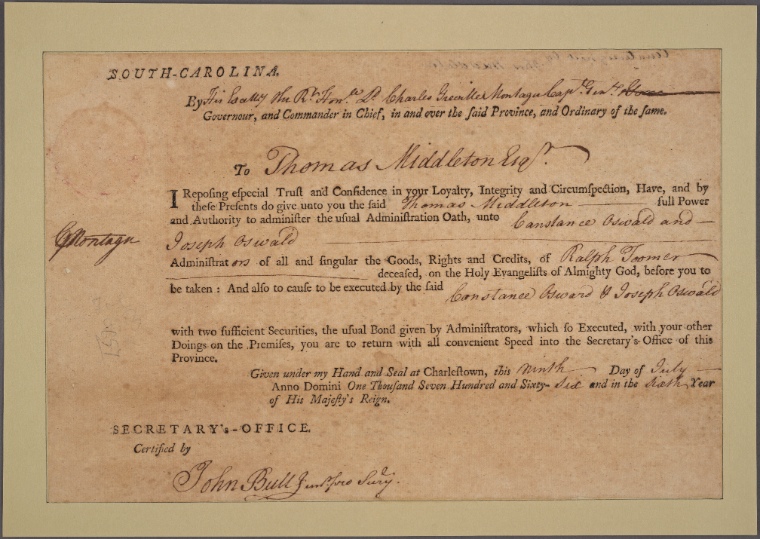 SOUTH-CAROLINA.
By His Excellcy the Rt. Honble. Ld. Charles Greville Montagu Capt. Genl.
Governour, and Commander in Chief, in and over the said Province, and Ordinary of the same.
To Thomas Middleton Esqr.
I Reposing especial Trust and Confidence in your Loyalty, Integrity and Circumspection, Have, and by
these Presents do give unto you the said Thomas Middleton full Power
and Authority to administer the usual Administration Oath, unto Constance Oswald and
Joseph Oswald
Administrators of all and singular the Goods, Rights and Credits, of Ralph Toomer
deceased, on the Holy Evangelists of Almighty God, before you to
be taken: And also to cause to be executed by the said Constance Osward & Joseph Oswald
with two sufficient Securities, the usual Bond given by Administrators, which so Executed, with your other
Doings on the Premises, you are to return with all convenient Speed into the Secretary's-Office of this
Province.
Given under my Hand and Seal at Charlestown, this Ninth Day of July
Anno Domini One Thousand Seven Hundred and Sixty-Six and in the Sixth Year
of His Majesty's Reign.
C G Montagu
SECRETARY's-OFFICE.
Certified by
John Bull Junr. pro Secry.